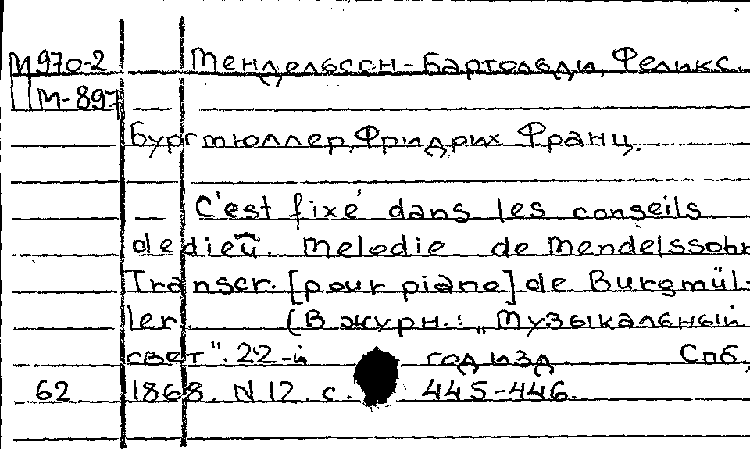 М970-2 Мендельсон-Бартольди, Феликс.
М-897
Бургмюллер, Фридрих Франц.
C'est fixé dans les conseils
de dieu. Melodie de Mendelssohn
Transcr. [pour piano] de Burgmül-
ler (В журн.: „Музыкальный
свет". 22-й год изд Спб,
62 1868. N 12. с. 445-446.